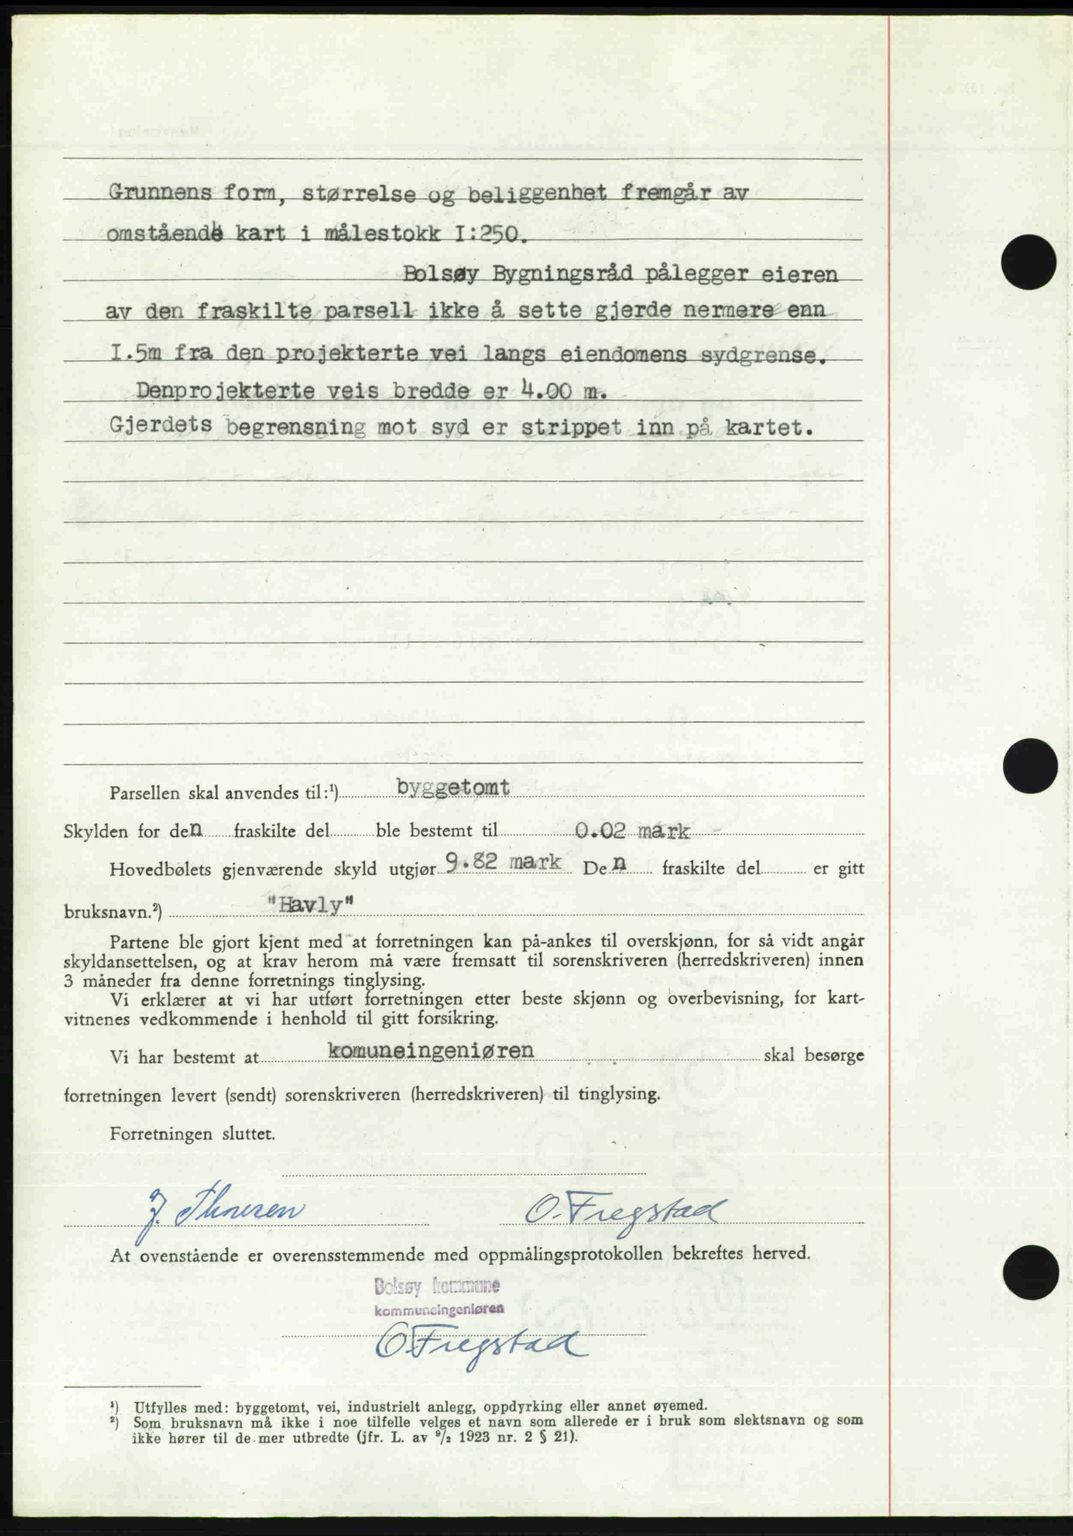 Grunnens form, størrelse og beliggenhet fremgår av
omstående kart i målestokk I:250.
Bolsøy Bygningsråd pålegger eieren
av den fraskilte parsell ikke å sette gjerde nermere enn
I.5m fra den projekterte vei langs eiendomens sydgrense.
Denprojekterte veis bredde er 4.00 m.
Gjerdets begrensning mot syd er strippet inn på kartet.
Parsellen skal anvendes til:¹) byggetomt
Skylden for den fraskilte del ble bestemt til 0.02 mark
Hovedbølets gjenværende skyld utgjør 9.82 mark Den fraskilte del er gitt
bruksnavn.²) "Havly"
Partene ble gjort kjent med at forretningen kan på-ankes til overskjønn, for så vidt angår
skyldansettelsen, og at krav herom må være fremsatt til sorenskriveren (herredskriveren) innen
3 måneder fra denne forretnings tinglysing.
Vi erklærer at vi har utført forretningen etter beste skjønn og overbevisning, for kart-
vitnenes vedkommende i henhold til gitt forsikring.
Vi har bestemt at komuneingeniøren skal besørge
forretningen levert (sendt) sorenskriveren (herredskriveren) til tinglysing.
Forretningen sluttet.
J. Thoresen O. Fregstad
At ovenstående er overensstemmende med oppmålingsprotokollen bekreftes herved.
Bolsøy kommune
kommuneingeniøren
O. Fregstad
¹) Utfylles med: byggetomt, vei, industrielt anlegg, oppdyrking eller annet øyemed.
²) Som bruksnavn må ikke i noe tilfelle velges et navn som allerede er i bruk som slektsnavn og som
ikke hører til de mer utbredte (jfr. L. av ⁹/₂ 1923 nr. 2 § 21).